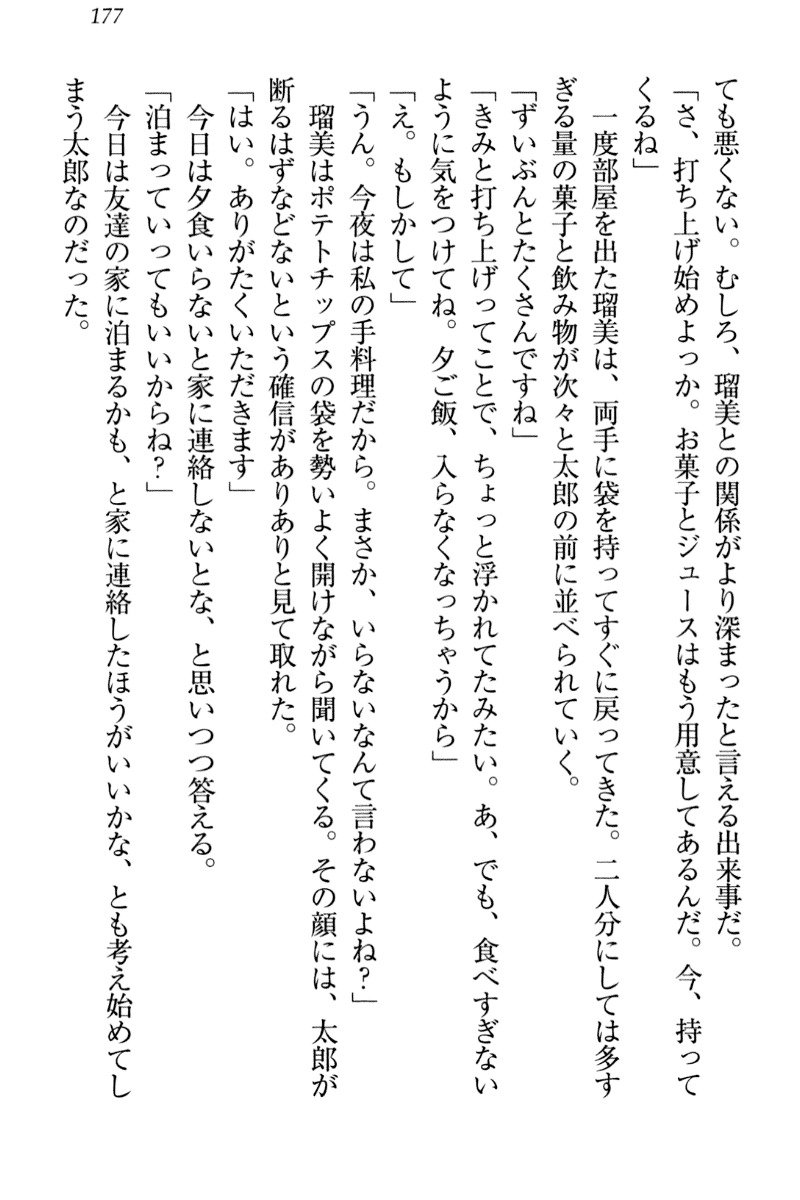 177
ても悪くない。むしろ、瑠美との関係がより深まったと言える出来事だ。
「さ、打ち上げ始めよっか。お菓子とジュースはもう用意してあるんだ。今、持って
くるね」
一度部屋を出た瑠美は、両手に袋を持ってすぐに戻ってきた。二人分にしては多す
ぎる量の菓子と飲み物が次々と太郎の前に並べられていく。
「ずいぶんとたくさんですね」
「きみと打ち上げってことで、ちょっと浮かれてたみたい。あ、でも、食べすぎない
ように気をつけてね。夕ご飯、入らなくなっちゃうから」
「え。もしかして」
「うん。今夜は私の手料理だから。まさか、いらないなんて言わないよね?」
瑠美はポテトチップスの袋を勢いよく開けながら聞いてくる。その顔には、太郎が
断るはずなどないという確信がありありと見て取れた。
「はい。ありがたくいただきます」
今日は夕食いらないと家に連絡しないとな、と思いつつ答える。
「泊まっていってもいいからね?」
今日は友達の家に泊まるかも、と家に連絡したほうがいいかな、とも考え始めてし
まう太郎なのだった。